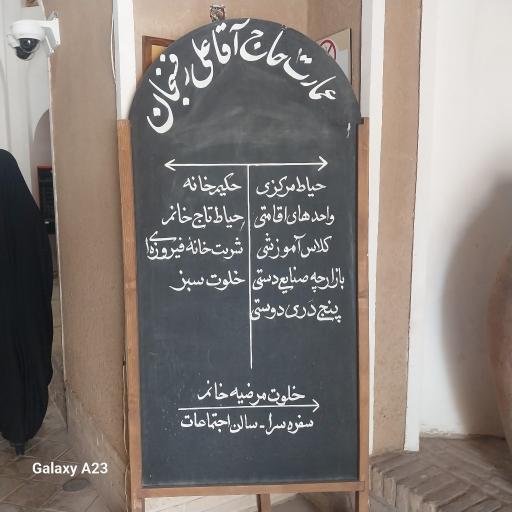 عمارت حاج آقا علی رفسنجان
حیاط مرکزی
واحدهای اقامتی
کلاس آموزشی
بازارچه صنایع دستی
پنج دری دوستی
حکیم خانه
حیاط تاج خانم
شربت خانه فیروزه‌ای
خلوت سبز
خلوت مرضیه خانم
سفره سرا - سالن اجتماعات
Galaxy A23